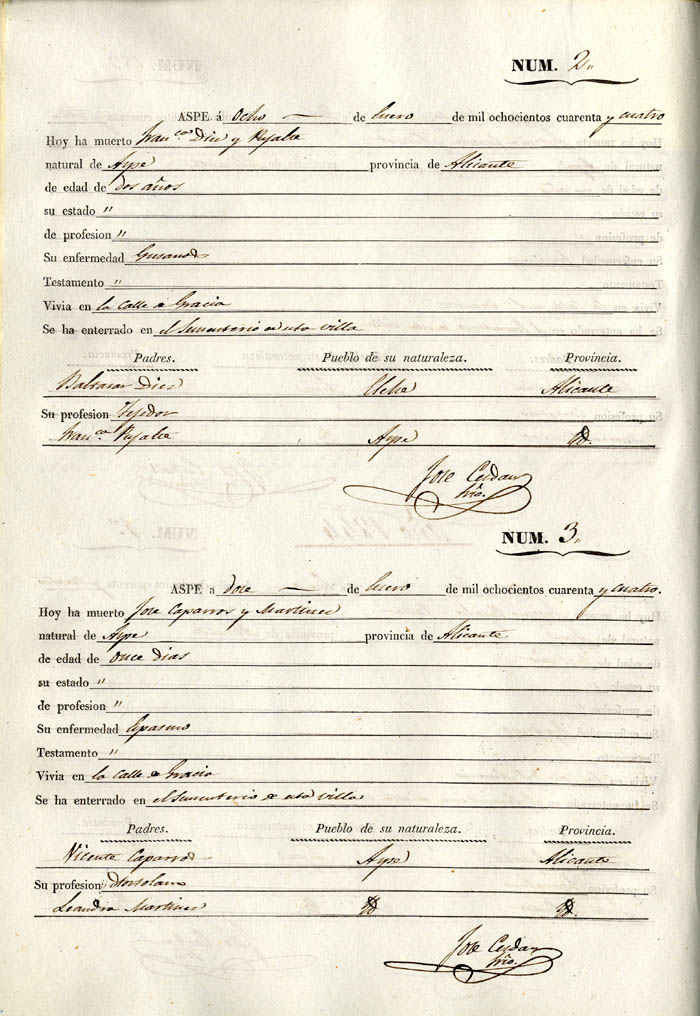 NUM. 2"
ASPE á Ocho — de Enero de mil ochocientos cuarenta y cuatro
Hoy ha muerto Fran.co Dies y Pujalte
natural de Aspe provincia de Alicante
de edad de dos años
su estado "
de profesion "
Su enfermedad Gusanos
Testamento "
Vivia en la Calle de Gracia
Se ha enterrado en el Sementerio de esta villa
Padres. Pueblo de su naturaleza. Provincia.
Baltasar Dies Elche Alicante
Su profesion Tejedor
Fran.ca Pujalte Aspe Id.
Jose Cerdan
Srio.
NUM. 3"
ASPE a doce — de Enero de mil ochocientos cuarenta y cuatro.
Hoy ha muerto Jose Caparros y Martines
natural de Aspe provincia de Alicante
de edad de once dias
su estado "
de profesion "
Su enfermedad Espasmo
Testamento "
Vivia en la Calle de Gracia
Se ha enterrado en el Sementerio de esta villa
Padres. Pueblo de su naturaleza. Provincia.
Vicente Caparros Aspe Alicante
Su profesion Hortolano
Leandra Martines Id Id.
Jose Cerdan
Srio.